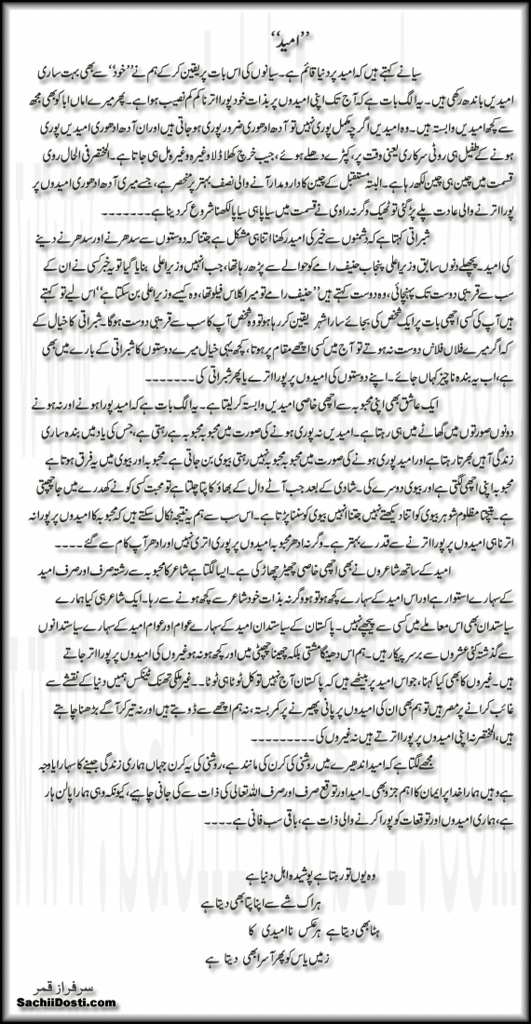 ’’امید‘‘
سیانے کہتے ہیں کہ امید پر دنیا قائم ہے۔ سیانوں کی اس بات پر یقین کر کے ہم نے ’’خود‘‘ سے بھی بہت ساری
امیدیں باندھ رکھی ہیں۔ یہ الگ بات ہے کہ آج تک اپنی امیدوں پر بذات خود پورا اترنا کم کم نصیب ہوا ہے۔ پھر میرے اماں ابا کو بھی مجھ
سے کچھ امیدیں وابستہ ہیں۔ وہ امیدیں اگرچہ مکمل پوری نہیں تو آدھ ادھوری ضرور پوری ہو جاتی ہیں اور ان آدھ ادھوری امیدیں پوری
ہونے کے طفیل ہی روٹی سرکاری یعنی وقت پر، کپڑے دھلے ہوئے، جیب خرچ کھلا ڈلا وغیرہ وغیرہ مل ہی جاتا ہے۔ المختصر فی الحال روی
قسمت میں چین ہی چین لکھ رہا ہے۔ البتہ مستقبل کے چین کا دارومدار آنے والی نصف بہتر پر منحصر ہے، جسے میری آدھ ادھوری امیدوں پر
پورا اترنے والی عادت پلے پڑ گئی تو ٹھیک وگرنہ راوی نے قسمت میں سیاپا ہی سیاپا لکھنا شروع کر دینا ہے۔۔۔۔۔۔۔
شبراتی کہتا ہے کہ دشمنوں سے خیر کی امید رکھنا اتنا ہی مشکل ہے جتنا کہ دوستوں سے سدھرنے اور سدھرنے دینے
کی امید۔ پچھلے دنوں سابق وزیر اعلی پنجاب حنیف رامے کو حوالے سے پڑھ رہا تھا، جب انہیں وزیر اعلی بنایا گیا تو یہ خبر کسی نے ان کے
سب سے قریبی دوست تک پہنچائی، وہ دوست کہتے ہیں ’’حنیف رامے تو میرا کلاس فیلو تھا، وہ کیسے وزیر اعلی بن سکتا ہے‘‘ اس لیے تو کہتے
ہیں آپ کی کسی اچھی بات پر ایک شخص کی بجائے سارا شہر یقین کر رہا ہو تو وہ شخص آپ کا سب سے قریبی دوست ہوگا۔ شبراتی کا خیال کے
کہ اگر میرے فلاں فلاں دوست نہ ہوتے تو آج میں کسی اچھے مقام پر ہوتا، کچھ یہی خیال میرے دوستوں کا شبراتی کے بارے میں بھی
ہے، اب یہ بندہ ناچیز کہاں جائے۔ اپنے دوستوں کی امیدوں پر پورا اترے یا پھر شبراتی کی۔۔۔۔۔۔۔
ایک عاشق بھی اپنی محبوبہ سے اچھی خاصی امیدیں وابستہ کر لیتا ہے۔ یہ الگ بات ہے کہ امید پورا ہونے اور نہ ہونے
دونوں صورتوں میں گھاٹے میں ہی رہتا ہے۔ امیدیں نہ پوری ہونے کی صورت میں محبوبہ محبوبہ ہے رہتی ہے، جس کی یاد میں بندہ ساری
زندگی آہیں بھرتا رہتا ہے اور امید پوری ہونے کی صورت میں محبوبہ محبوبہ نہیں رہتی بیوی بن جاتی ہے۔ محبوبہ اور بیوی میں یہ فرق ہوتا ہے
محبوبہ اپنی اچھی لگتی ہے اور بیوی دوسرے کی۔ شادی کے بعد جب آٹے دال کے بھاؤ کا پتا چلتا ہے تو محبت کسی کونے کھدرے میں جا چھپتی
ہے۔ نتیجتا مظلوم شوہر بیوی کو اتنا دیکھتے نہیں جتنا انہیں بیوی کو سننا پڑتا ہے۔ اس سب سے ہم یہ نتیجہ نکال سکتے ہیں کہ محبوبہ کا امیدوں پر پورا نہ
اترنا ہی امیدوں پر پورا اترنے سے قدرے بہتر ہے۔ وگرنہ ادھر محبوبہ امیدوں پر پوری اتری نہیں اور ادھر آپ کام سے گئے۔۔۔۔
امید کے ساتھ شاعروں نے بھی اچھی خاصی چھیڑ چھاڑ کی ہے۔ ایسا لگتا ہے شاعر کا محبوبہ سے رشتہ صرف اور صرف امید
کے سہارے استوار ہے اور اس امید کے سہارے کچھ ہو تو ہو وگرنہ بذات خود شاعر سے کچھ ہونے سے رہا۔ ایک شاعر ہی کیا ہمارے
سیاستدان بھی اس معاملے میں کسی سے پیچھے نہیں۔ پاکستان کے سیاستدان امید کے سہارے عوام اور عوام امید کے سہارے سیاستدانوں
سے گذشتہ کئی عشروں سے برسر پیکار ہیں۔ ہم اس دھینگا مشتی بلکہ چھینا جھپٹی میں اور کچھ ہو نہ ہو غیروں کی امیدوں پر پورا اتر جاتے
ہیں۔ غیروں کا بھی کیا کہنا، جو اس امید پر بیٹھے ہیں کہ پاکستان آج نہیں تو کل ٹوٹا ہی ٹوٹا۔۔ غیر ملکی تھنک ٹینکس ہمیں دنیا کے نقشے سے
غائب کرانے پر مصر ہیں تو ہم بھی ان کی امیدوں پر پانی پھیرنے پر کمر بستہ، نہ ہم اچھے سے ڈوبتے ہیں اور نہ تیر کر آگے بڑھنا چاہتے
ہیں، المختصر نہ اپنی امیدوں پر پورا اترتے ہیں نہ غیروں کی۔۔۔۔۔۔۔۔۔
مجھے لگتا ہے امید اندھیرے میں روشنی کی کرن کی مانند ہے، روشنی کی یہ کرن جہاں ہماری زندگی جینے کا سہارا یا وجہ
ہے وہیں ہمارا خدا پر ایمان کا اہم جزو بھی۔ امید اور توقع صرف اور صرف اللہ تعالی کی ذات سے کی جانی چاہیے، کیونکہ وہی ہمارا پالن ہار
ہے، ہماری امیدوں اور توقعات کو پورا کرنے والی ذات ہے، باقی سب فانی ہے۔۔۔۔
وہ یوں تو رہتا ہے پوشیدہ اہل دنیا سے
ہر اک شے سے اپنا پتا بھی دیتا ہے
ہٹا بھی دیتا ہے ہر عکس ناامیدی کا
زمیں یاس کو پھر آسرا بھی دیتا ہے
سرفراز قمر
SachiiDosti.com